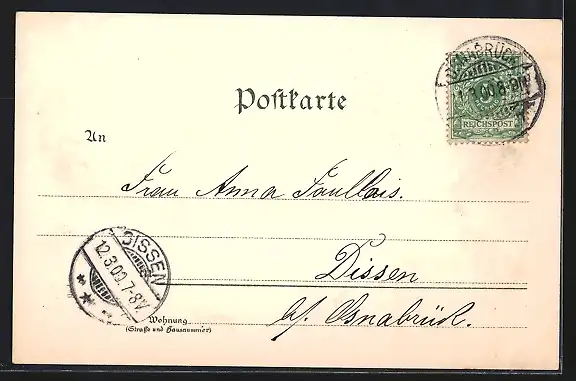 OSNABRÜCK
11.3.00.8-9N.
REICHSPOST
Postkarte
An
Frau Anna
DISSEN
12.3.00.7-8V.
in
Dissen
b/. Osnabrück.
Wohnung
(Straße und Hausnummer)